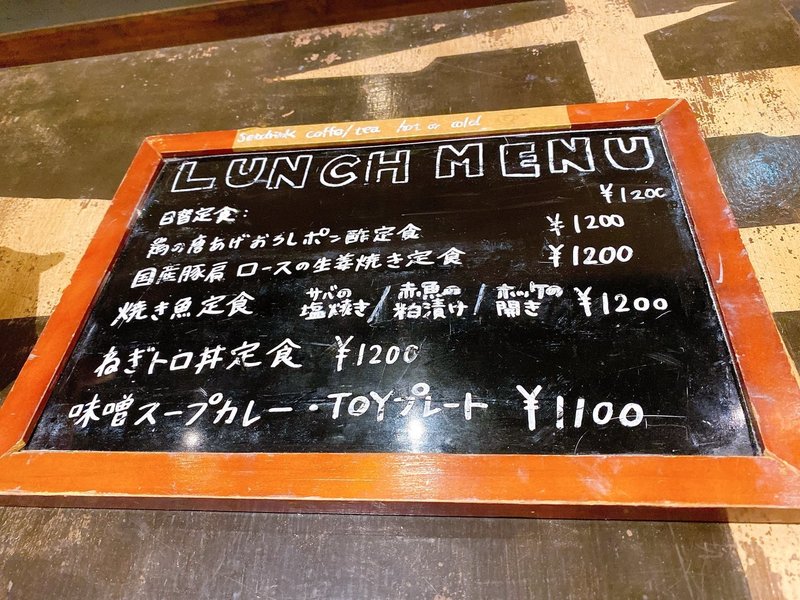 Setdrink coffe/tea hot or cold
LUNCH MENU
日替定食: ¥1200
鶏の唐あげおろしポン酢定食 ¥1200
国産豚肩ロースの生姜焼き定食 ¥1200
焼き魚定食 サバの塩焼き/赤魚の粕漬け/ホッケの開き ¥1200
ねぎトロ丼定食 ¥1200
味噌スープカレー・TOYプレート ¥1100